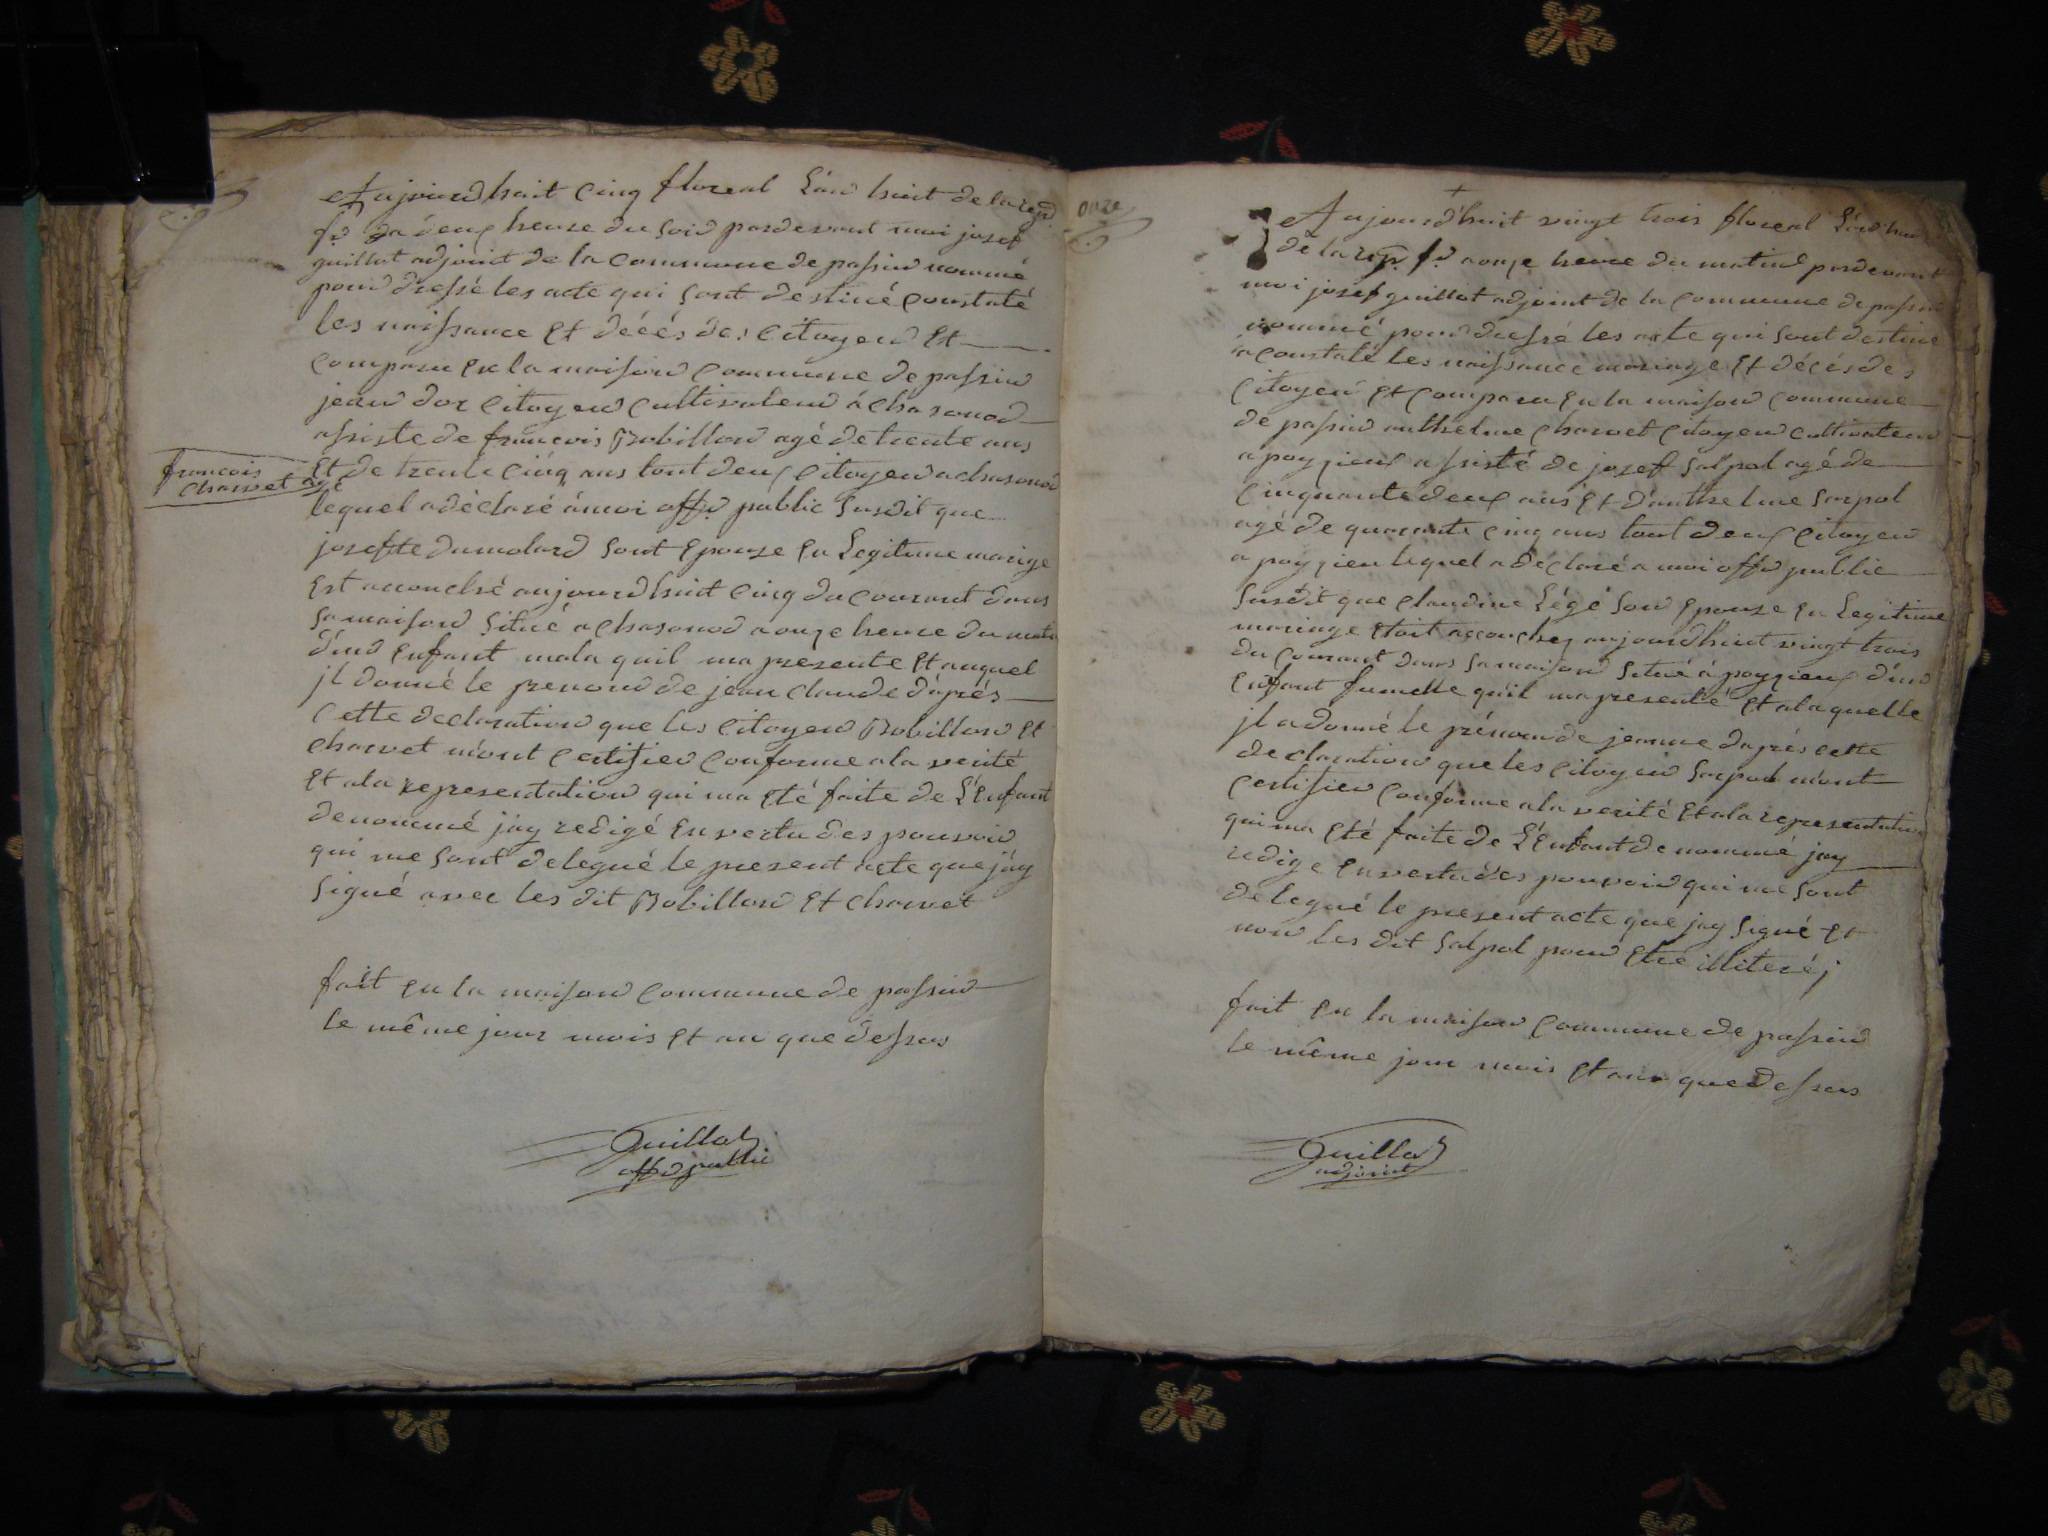 Aujourdhuit cinq floreal L'an huit de la rep.
fr. à deux heure du soir pardevant moi josef
guillot adjoint de la commune de passin nommé
pour dressé les acte qui sont destiné constaté
les naissance et décés des citoyen et
comparu en la maison commune de passin
jean dor citoyen cultivateur à chasonod
assiste de francois Robillon agé de trente ans
francois
charvet agé
et de trente cinq ans tout deux citoyen a chasonod
lequel a déclaré à moi offr public susdit que
josefte dumolard sont epouse en Legitime marige
est accouché aujourdhuit cinq du courant dans
sa maison situé a chasonod a onze heure du matin
d'un enfant mala quil ma presente et auquel
jl donné le prenom de jean claude d'après
cette declaration que les citoyen Robillon et
charvet m'ont certifier conforme a la verité
et a la representation qui ma eté faite de L'Enfant
denommé jay redigé en vertu des pouvoir
qui me sont delegué le present acte que jay
signé avec les dit Robillon et charvet
fait en la maison commune de passin
le même jour mois et an que dessus
Guillot
offr public
onze
Aujourd'huit vingt trois floreal L'an huit
de la rep. fr. a onze heure du matin pardevant
moi josef guillot adjoint de la commune de passin
nommé pour dressé les acte qui sont destiné
a constaté les naissance mariage et décés des
citoyen et comparu en la maison commune
de passin anthelme charvet citoyen cultivateur
a poyzieux assisté de josef salpol agé de
cinquante deux ans et d'anthelme sarpol
agé de quarante cinq ans tout deux citoyen
a poyzieu lequel a déclaré a moi offr public
susdit que claudine Légé son epouse en Legitime
mariage etoit accouchez aujourdhuit vingt trois
du courant dans sa maison situé à poyzieux d'un
enfant fumelle qu'il ma presenté et a la quelle
jl a donné le prénom de jeanne daprés cette
declaration que les citoyen sarpol m'ont
certifier conforme a la verité et a la representation
qui ma eté faite de L'Enfant denommé jay
redige en vertu des pouvoir qui me sont
delegué le present acte que jay signé et
non les dit salpol pour etre illiteréj
fait en la maison commune de passin
le même jour mois et an que dessus
Guillot
adjoint